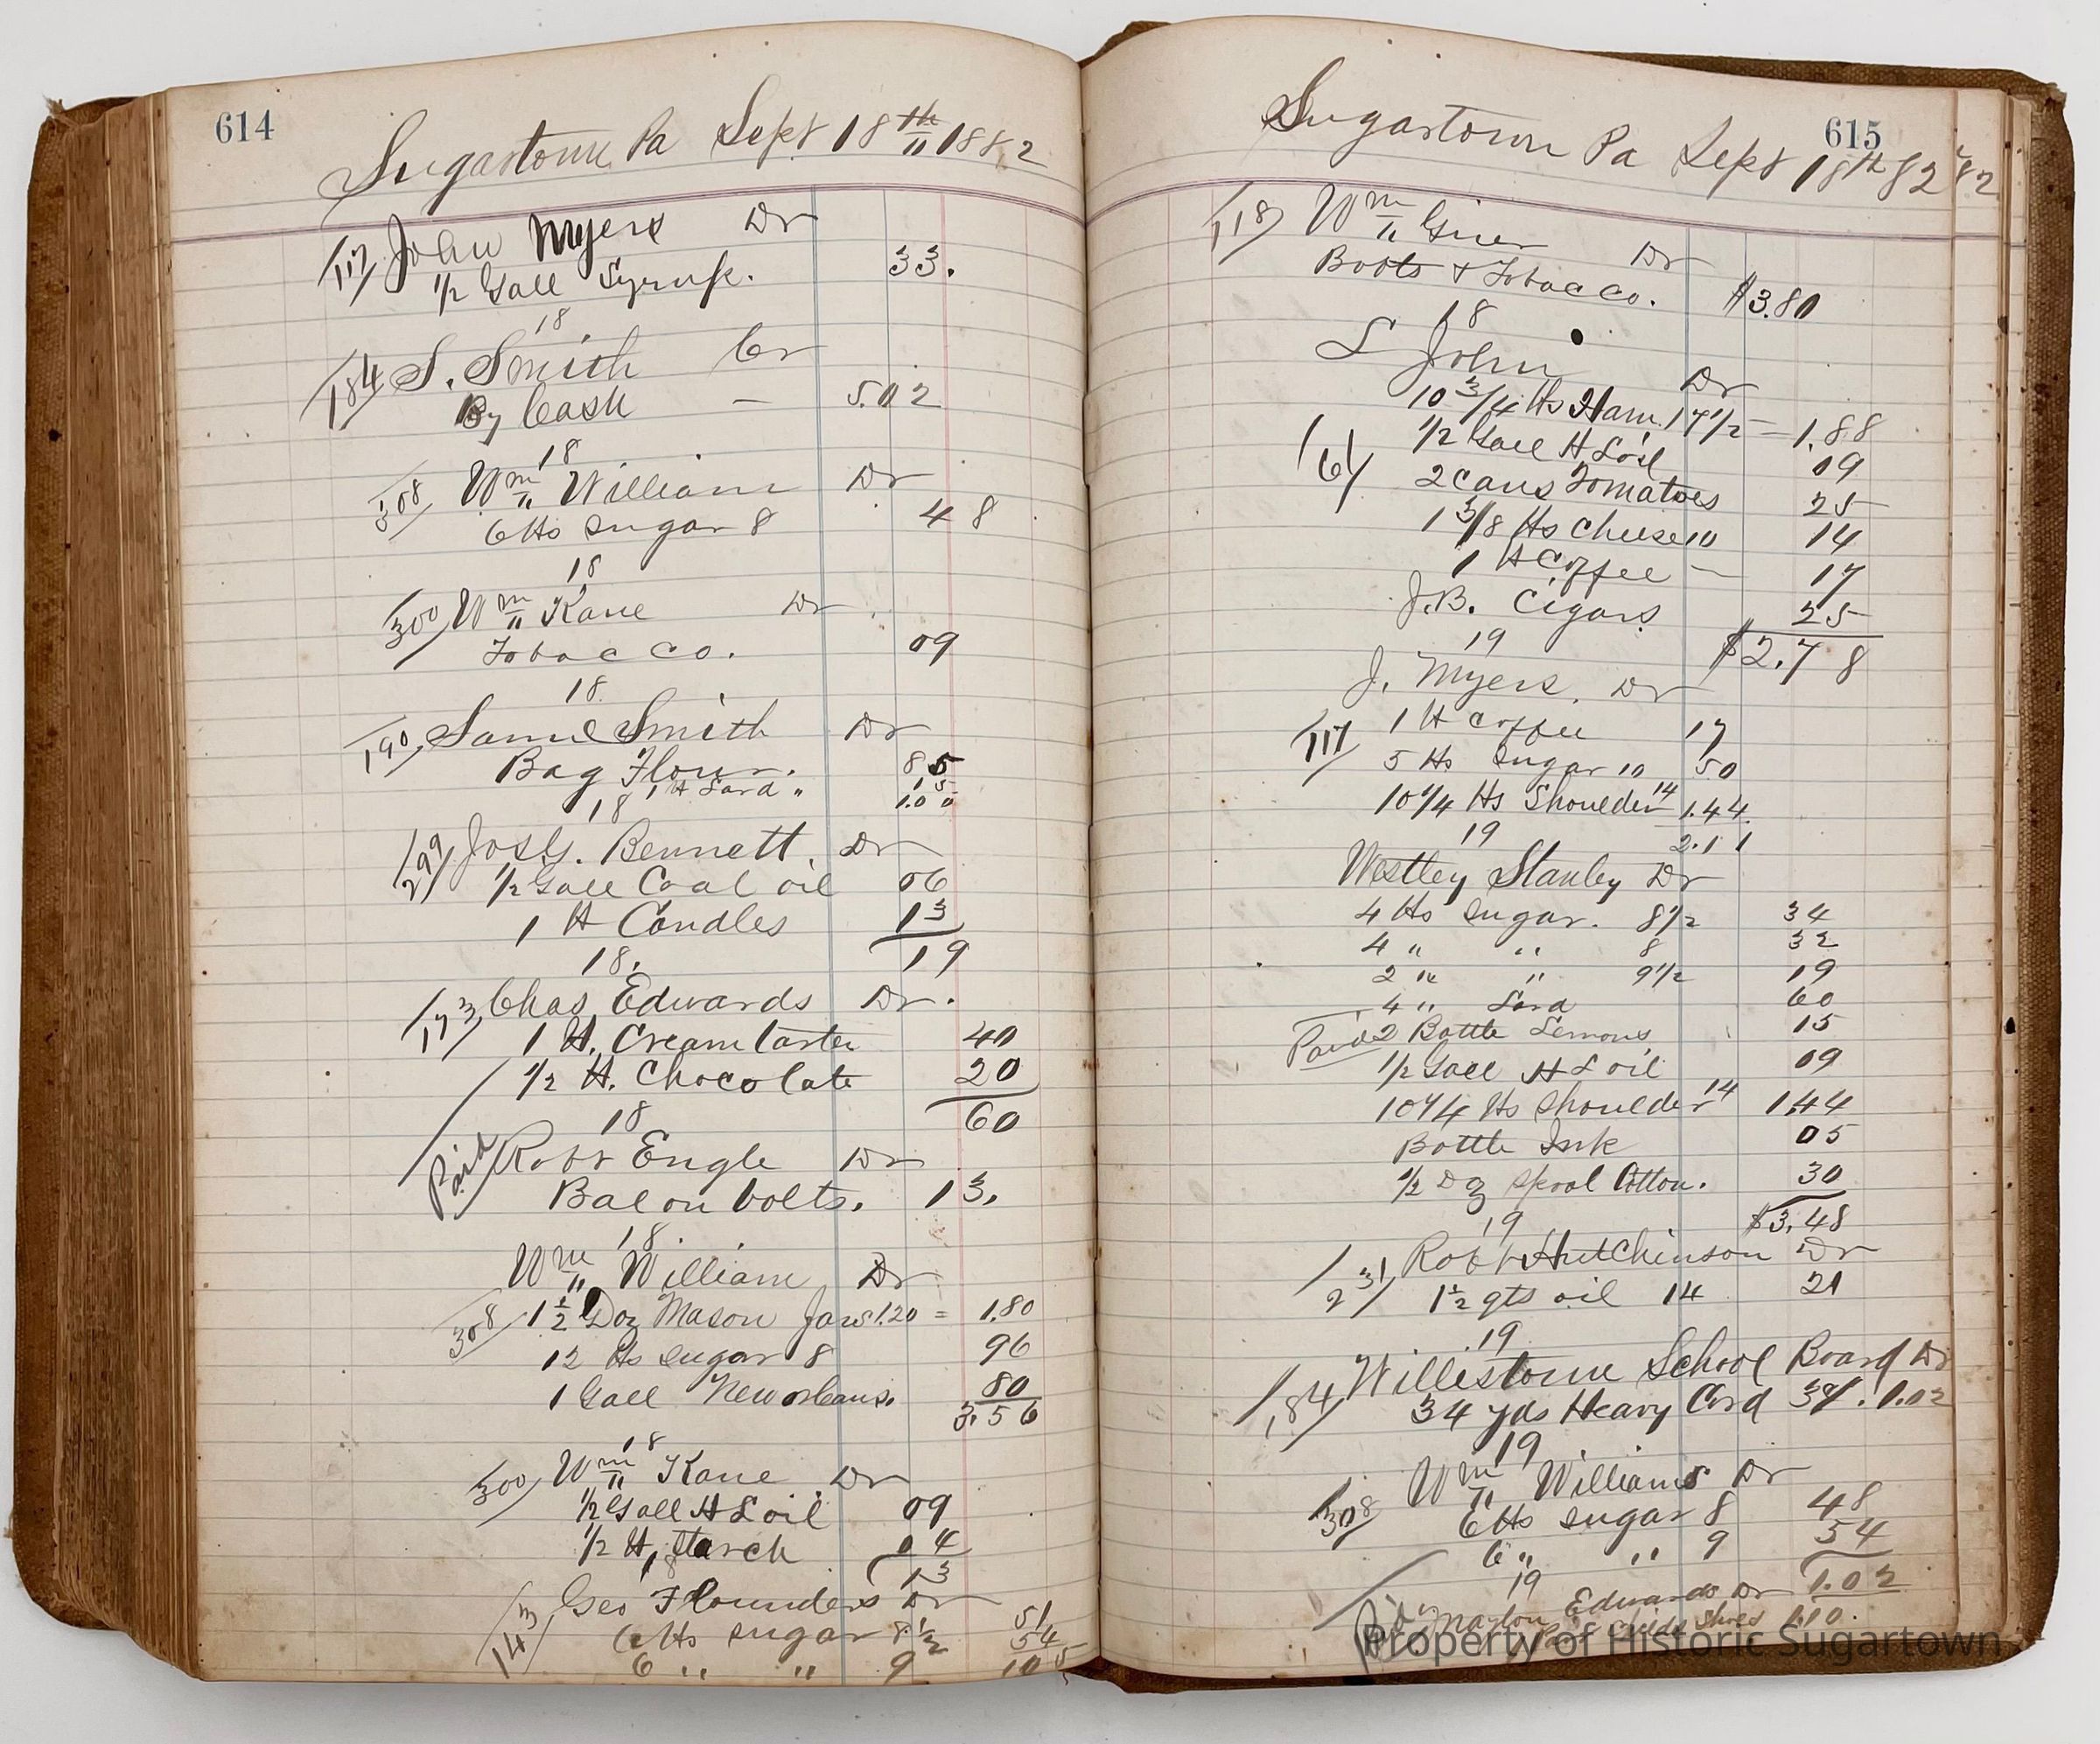 614
Sugartown Pa Sept 18th 1882
117 John Myers Dr
1/2 Gall Syrup. 33.
18
184 S. Smith Cr
By Cash — 5.02
18
308 Wm William Dr
6 lbs Sugar 8 48
18
300 Wm Kane Dr
Tobacco. 09
18.
190 Saml Smith Dr
Bag Flour. 85
1 lb Lard " 15
18 1.00
299 Jos G. Bennett. Dr
1/2 Gall Coal oil 06
1 lb Candles 13
18. 19
173 Chas Edwards Dr.
1 lb. Cream tarter 40
1/2 lb. Chocolate 20
18 60
Paid Robt Engle Dr
Bal on bolts. 13.
18.
Wm William Dr
308 1 1/2 Doz Mason Jars 1.20 = 1.80
12 lbs Sugar 8 96
1 Gall New orleans. 80
3.56
18
300 Wm Kane Dr
1/2 Gall H L oil 09
1/2 lb, Starch 04
18 13
143 Geo Flounders Dr
6 lbs Sugar 8 1/2 51
6 " " 9 54
105
615
Sugartown Pa Sept 18th 82 82
118 Wm Grier Dr
Boots & Tobacco. $3.80
18
L John Dr
10 3/4 lbs Ham 17 1/2 — 1.88
1/2 Gall H L oil 09
161 2 cans Tomatoes 25
1 3/8 lbs Cheese 10 14
1 lb Coffee — 17
J.B. Cigars 25
19 $2.78
J. Myers. Dr
117 1 lb coffee 17
5 lbs Sugar 10 50
10 1/4 lbs Shoulder 14 1.44
19 2.11
Westley Stanley Dr
4 lbs Sugar. 8 1/2 34
4 " " 8 32
2 " " 9 1/2 19
4 " Lard 60
Paid 2 Bottle Lemons 15
1/2 Gall H L oil 09
10 1/4 lbs Shoulder 14 1.44
Bottle Ink 05
1/2 Doz Spool Cotton. 30
19 $3.48
231 Robt Hutchinson Dr
1 1/2 qts oil 14 21
19
184 Willistown School Board Dr
34 yds Heavy Cord 3¢. 1.02
19
Wm Williams Dr
308 6 lbs Sugar 8 48
6 " " 9 54
19 1.02
Edwards Dr
Pair Childs Shoes 1.10.
Property of Historic Sugartown